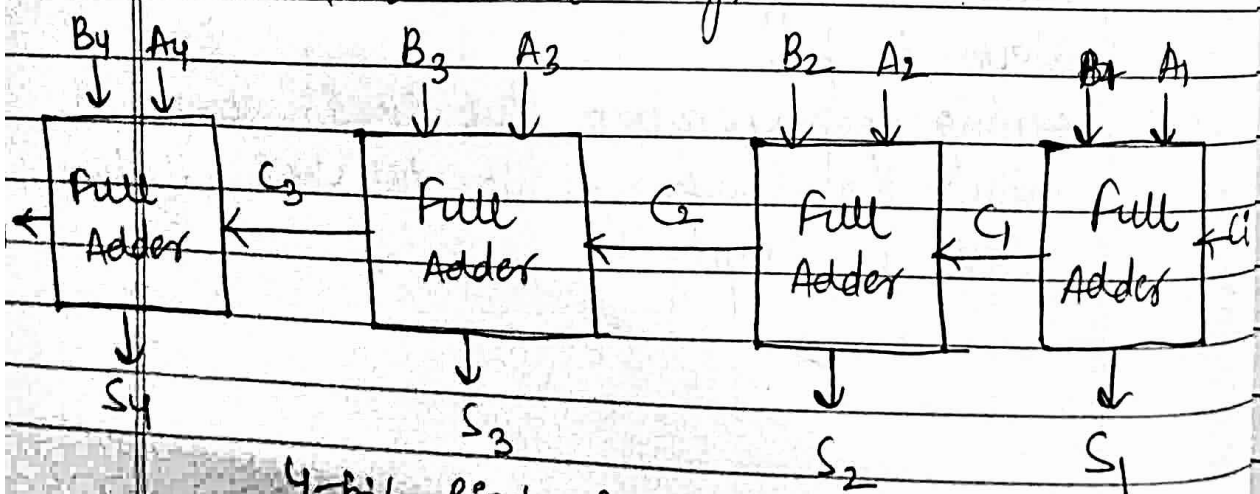 B4 A4 B3 A3 B2 A2 B1 A1
Full Adder C3 Full Adder C2 Full Adder C1 Full Adder Ci
S4 S3 S2 S1
4-bit